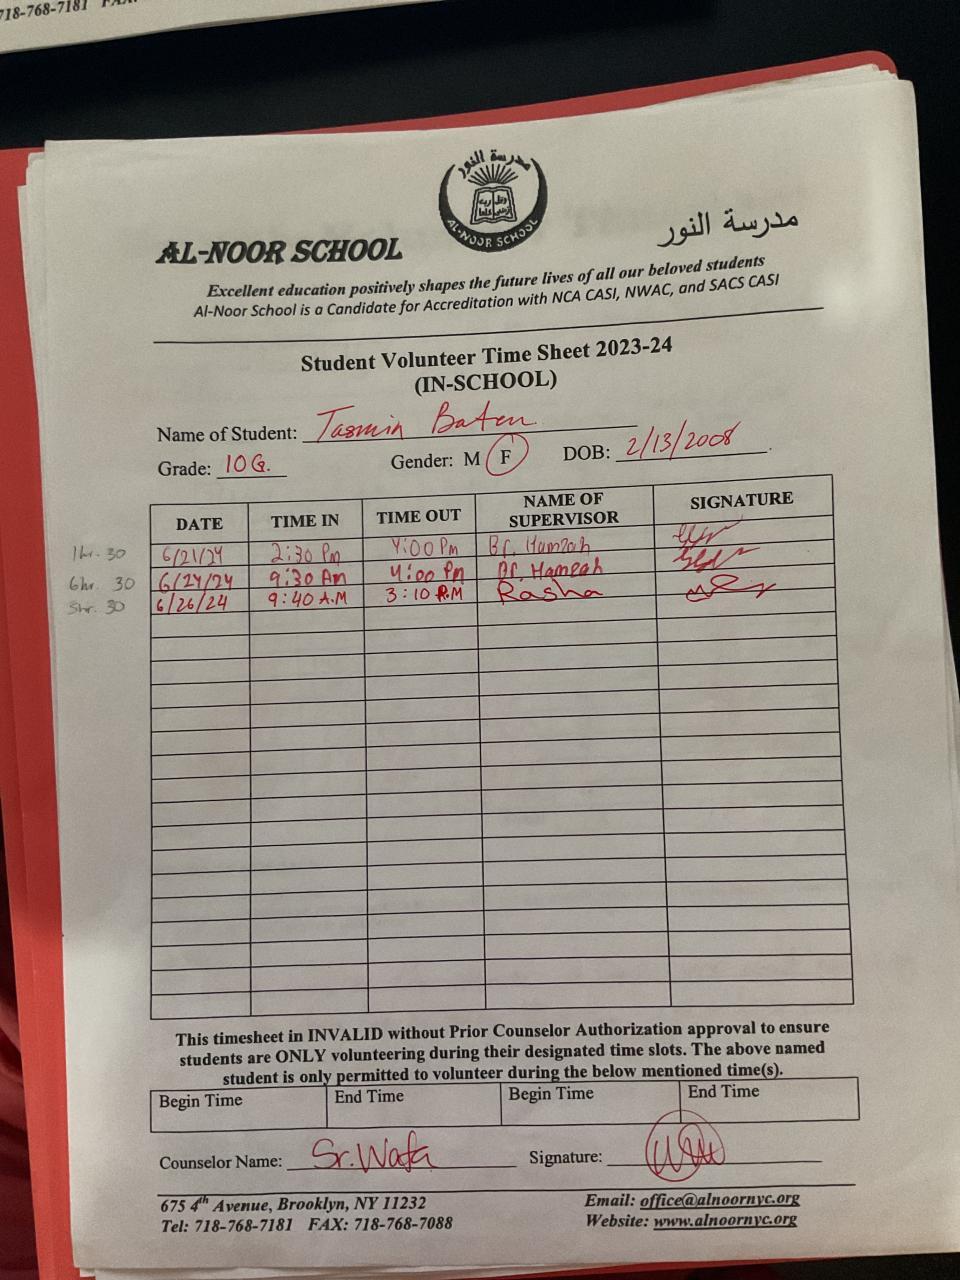 718-768-7181 FAX:
مدرسة النور
AL-NOOR SCHOOL
AL-NOOR SCHOOL
مدرسة النور
Excellent education positively shapes the future lives of all our beloved students
Al-Noor School is a Candidate for Accreditation with NCA CASI, NWAC, and SACS CASI
Student Volunteer Time Sheet 2023-24
(IN-SCHOOL)
Name of Student: Tasmin Baten
Grade: 10G. Gender: M F DOB: 2/13/2008
DATE TIME IN TIME OUT NAME OF SUPERVISOR SIGNATURE
1hr. 30 6/21/24 2:30 Pm 4:00 Pm Br. Hamzah
6hr. 30 6/24/24 9:30 Am 4:00 Pm Br. Hamzah
5hr. 30 6/26/24 9:40 A.M 3:10 P.M Rasha
This timesheet in INVALID without Prior Counselor Authorization approval to ensure
students are ONLY volunteering during their designated time slots. The above named
student is only permitted to volunteer during the below mentioned time(s).
Begin Time End Time Begin Time End Time
Counselor Name: Sr. Wafa Signature:
675 4th Avenue, Brooklyn, NY 11232 Email: office@alnoornyc.org
Tel: 718-768-7181 FAX: 718-768-7088 Website: www.alnoornyc.org